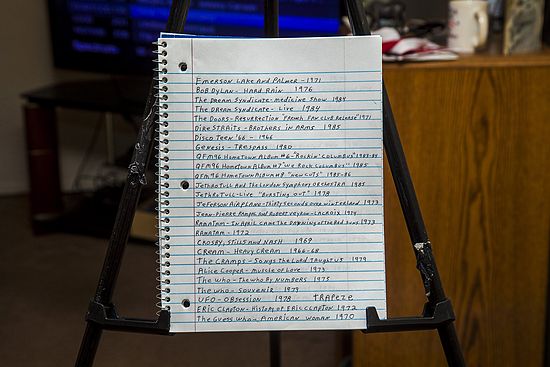 EMERSON LAKE AND PALMER - 1971
BOB DYLAN - HARD RAIN 1976
THE DREAM SYNDICATE - MEDICINE SHOW 1984
THE DREAM SYNDICATE - LIVE 1984
THE DOORS - RESURRECTION "FRENCH FAN CLUB RELEASE" 1971
DIRE STRAITS - BROTHERS IN ARMS 1985
DISCO TEEN '66 - 1966
GENESIS - TRESPASS 1980
QFM96 HOMETOWN ALBUM #6 - ROCKIN' COLUMBUS" 1983-84
QFM96 HOMETOWN ALBUM #7 "WE ROCK COLUMBUS" 1985
QFM96 HOMETOWN ALBUM #8 "NEW CUTS" 1985-86
JETHRO TULL AND THE LONDON SYMPHONY ORCHESTRA 1985
JETHRO TULL - LIVE "BURSTING OUT" 1978
JEFERSON AIRPLANE - THIRTY SECONDS OVER WINTERLAND 1973
JEAN-PIERRE RAMPAL AND ROBERT VEYRON-LACROIX 1974
RAMATAM - IN APRIL CAME THE DAWNING OF THE RED SUNS 1973
RAMATAM - 1972
CROSBY, STILLS AND NASH 1969
CREAM - HEAVY CREAM 1966-68
THE CRAMPS - SONGS THE LORD TAUGHT US 1979
ALICE COOPER - MUSCLE OF LOVE 1973
THE WHO - THE WHO BY NUMBERS 1975
THE WHO - SOUVENIR 1979
UFO - OBSESSION 1978 TRAPEZE
ERIC CLAPTON - HISTORY OF ERIC CLAPTON 1972
THE GUESS WHO - AMERICAN WOMAN 1970